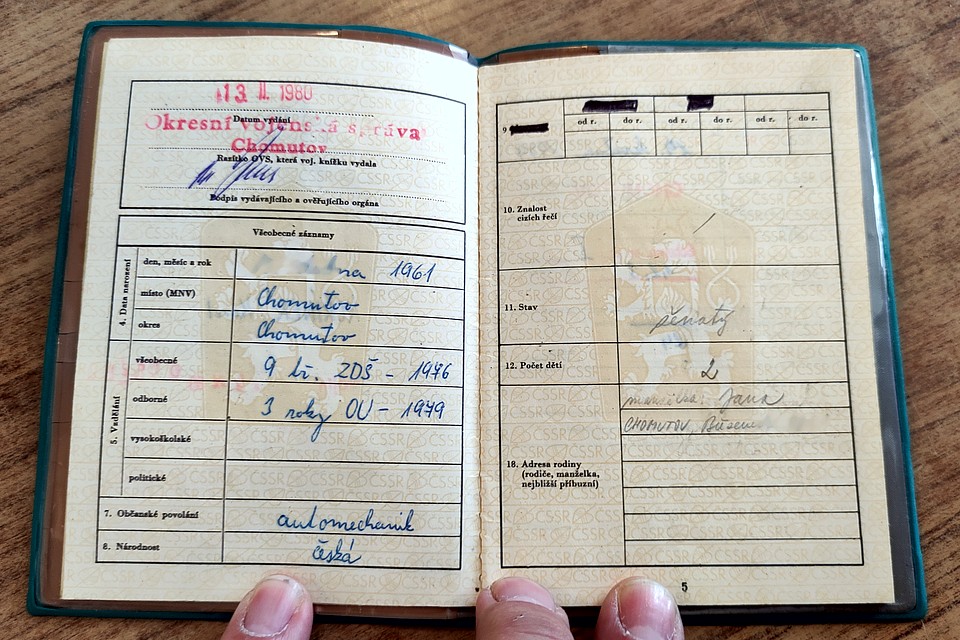 13. II. 1980
Datum vydání
Okresní vojenská správa
Chomutov
Razítko OVS, která voj. knížku vydala
Podpis vydávajícího a ověřujícího orgána
Všeobecné záznamy
4. Data narození
den, měsíc a rok
na 1961
místo (MNV)
Chomutov
okres
Chomutov
5. Vzdělání
všeobecné
9 tř. ZDŠ - 1976
odborné
3 roky OU - 1979
vysokoškolské
politické
7. Občanské povolání
automechanik
8. Národnost
česká
9
od r. do r. od r. do r. od r. do r.
10. Znalost
cizích řečí
11. Stav
ženatý
12. Počet dětí
2
manželka: Jana
CHOMUTOV,
18. Adresa rodiny
(rodiče, manželka,
nejbližší příbuzní)
5